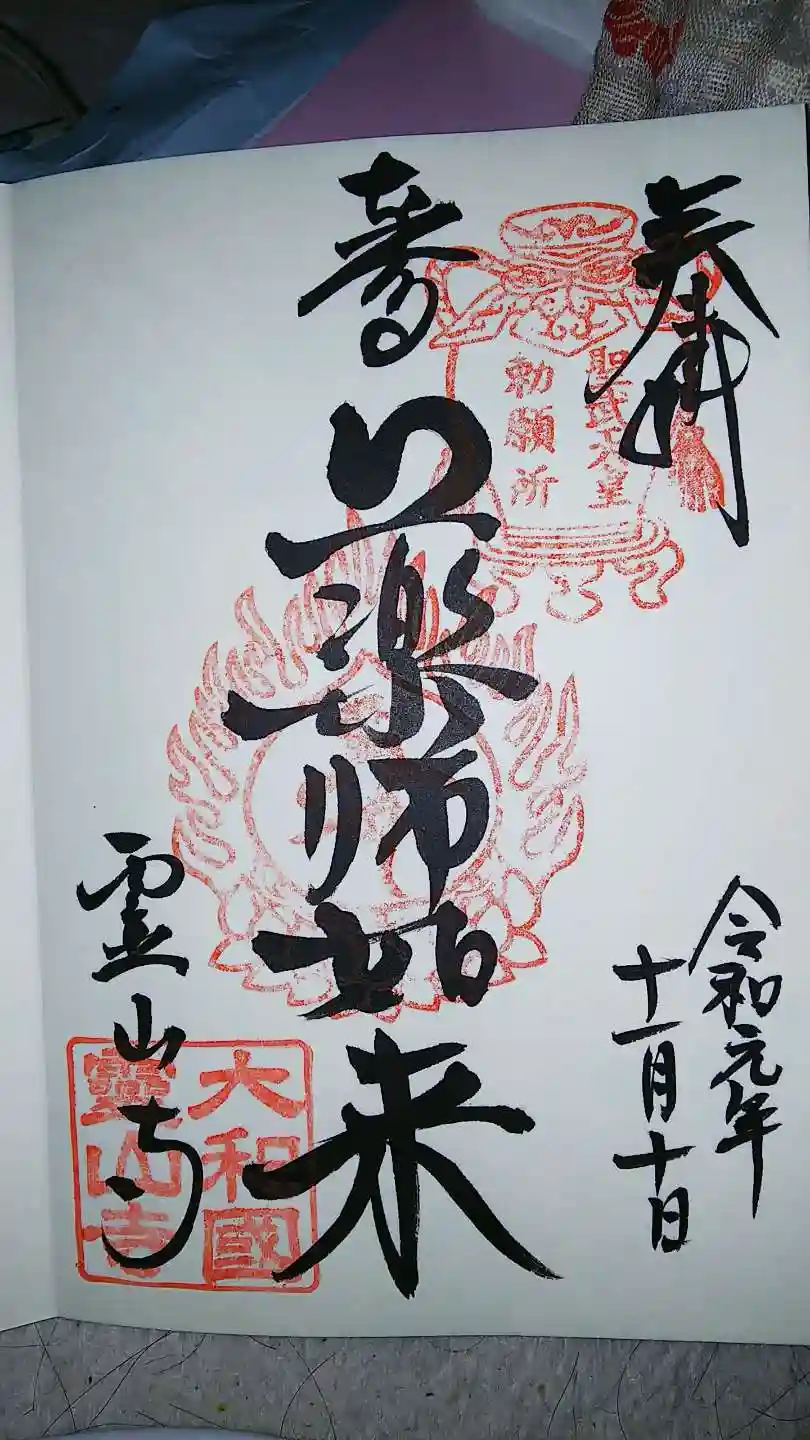 奉拝
令和元年
十一月十日
聖武天皇
勅願所
薬師如来
霊山寺
大和國
靈山寺